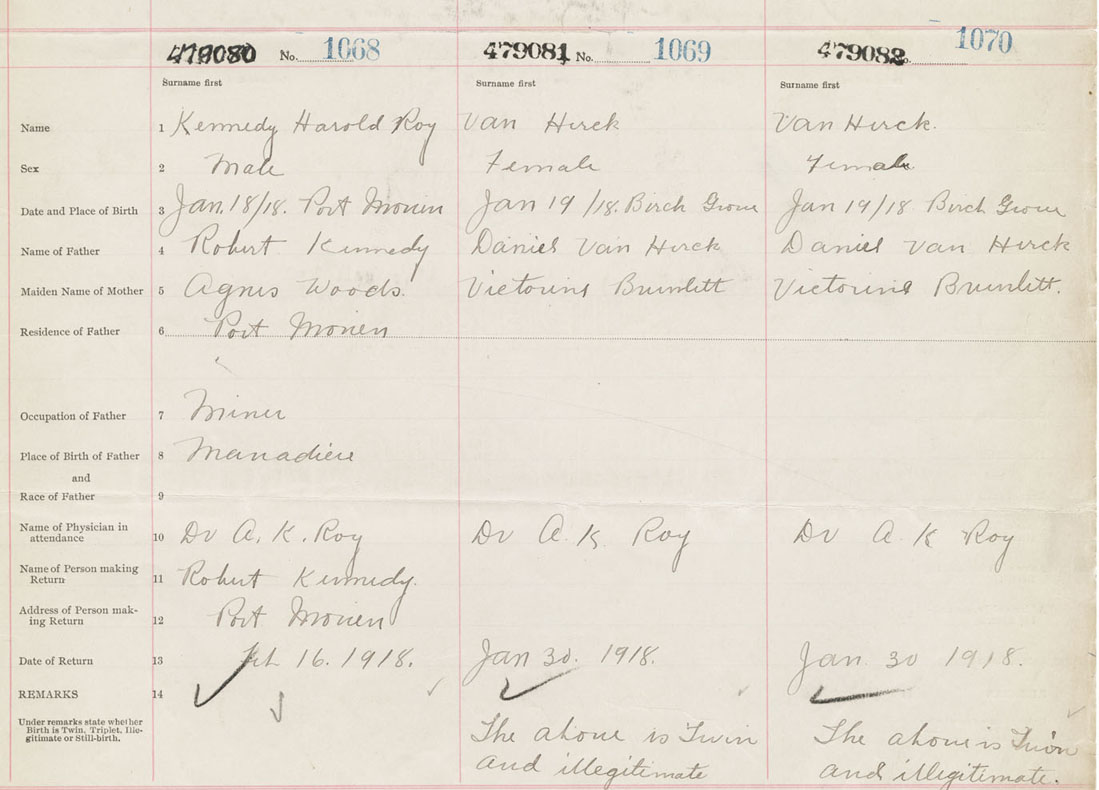 479080 No. 1068 479081 No. 1069 479082 No. 1070
Surname first Surname first Surname first
Name 1 Kennedy Harold Roy Van Hirck Van Hirck.
Sex 2 Male Female Female
Date and Place of Birth 3 Jan. 18/18. Port Morien Jan 19/18. Birch Grove Jan 19/18 Birch Grove
Name of Father 4 Robert Kennedy Daniel Van Hirck Daniel Van Hirck
Maiden Name of Mother 5 Agnes Woods. Victorine Victorine
Residence of Father 6 Port Morien
Occupation of Father 7 Miner
Place of Birth of Father 8
and
Race of Father 9
Name of Physician in
attendance 10 Dr A. K. Roy Dr A. K. Roy Dr A K Roy
Name of Person making
Return 11 Robert Kennedy.
Address of Person mak-
ing Return 12 Port Morien
Date of Return 13 Feb 16. 1918. Jan 30. 1918. Jan. 30 1918.
REMARKS 14
Under remarks state whether
Birth is Twin, Triplet, Ille-
gitimate or Still-birth.
The above is Twin The above is Twin
and illegitimate and illegitimate.